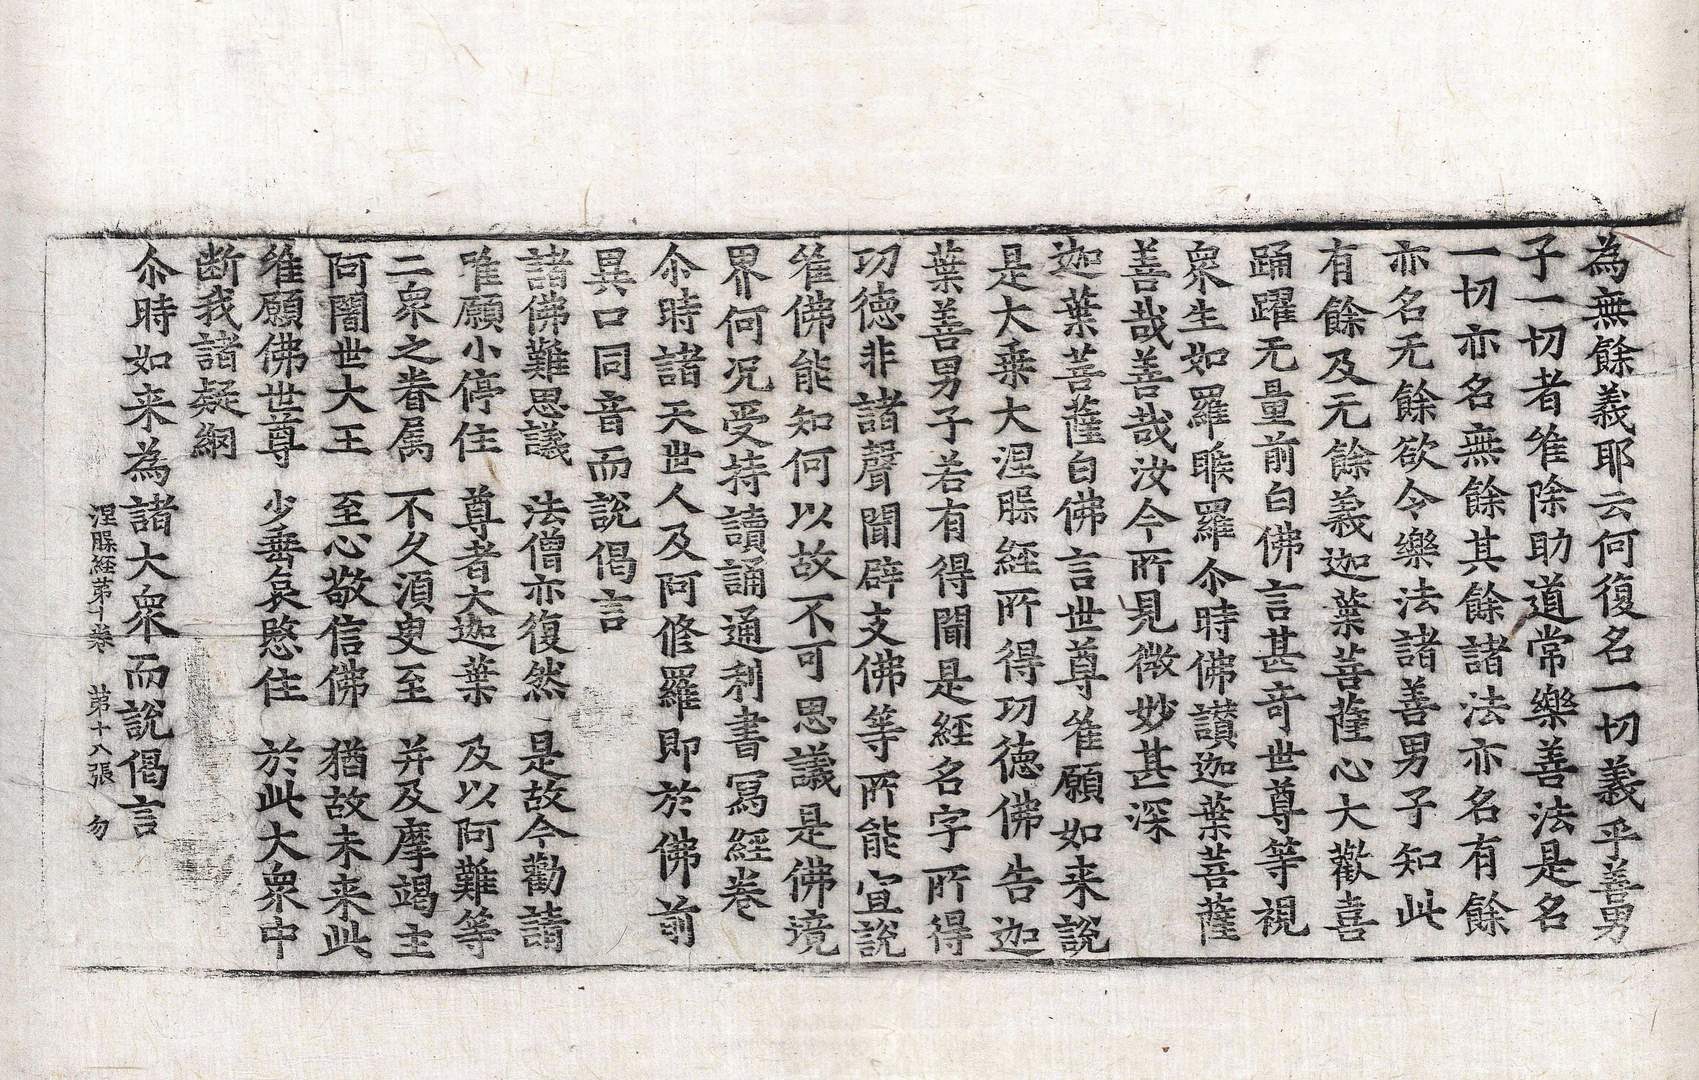 為無餘義耶云何復名一切義乎善男
子一切者唯除助道常樂善法是名
一切亦名無餘其餘諸法亦名有餘
亦名无餘欲令樂法諸善男子知此
有餘及无餘義迦葉菩薩心大歡喜
踊躍无量前白佛言甚奇世尊等視
衆生如羅睺羅尒時佛讃迦葉菩薩
善哉善哉汝今所見微妙甚深
迦葉菩薩白佛言世尊唯願如来說
是大乗大涅槃經所得功德佛告迦
葉善男子若有得聞是經名字所得
功德非諸聲聞辟支佛等所能宣說
唯佛能知何以故不可思議是佛境
界何况受持讀誦通利書冩經卷
尒時諸天世人及阿脩羅即於佛前
異口同音而說偈言
諸佛難思議　法僧亦復然　是故今勸請
唯願小停住　尊者大迦葉　及以阿難等
二衆之眷属　不久須臾至　并及摩竭主
阿闍世大王　至心敬信佛　猶故未来此
唯願佛世尊　少垂哀愍住　於此大衆中
断我諸疑網
尒時如来為諸大衆而說偈言
涅槃経苐十卷　苐十八張　勿